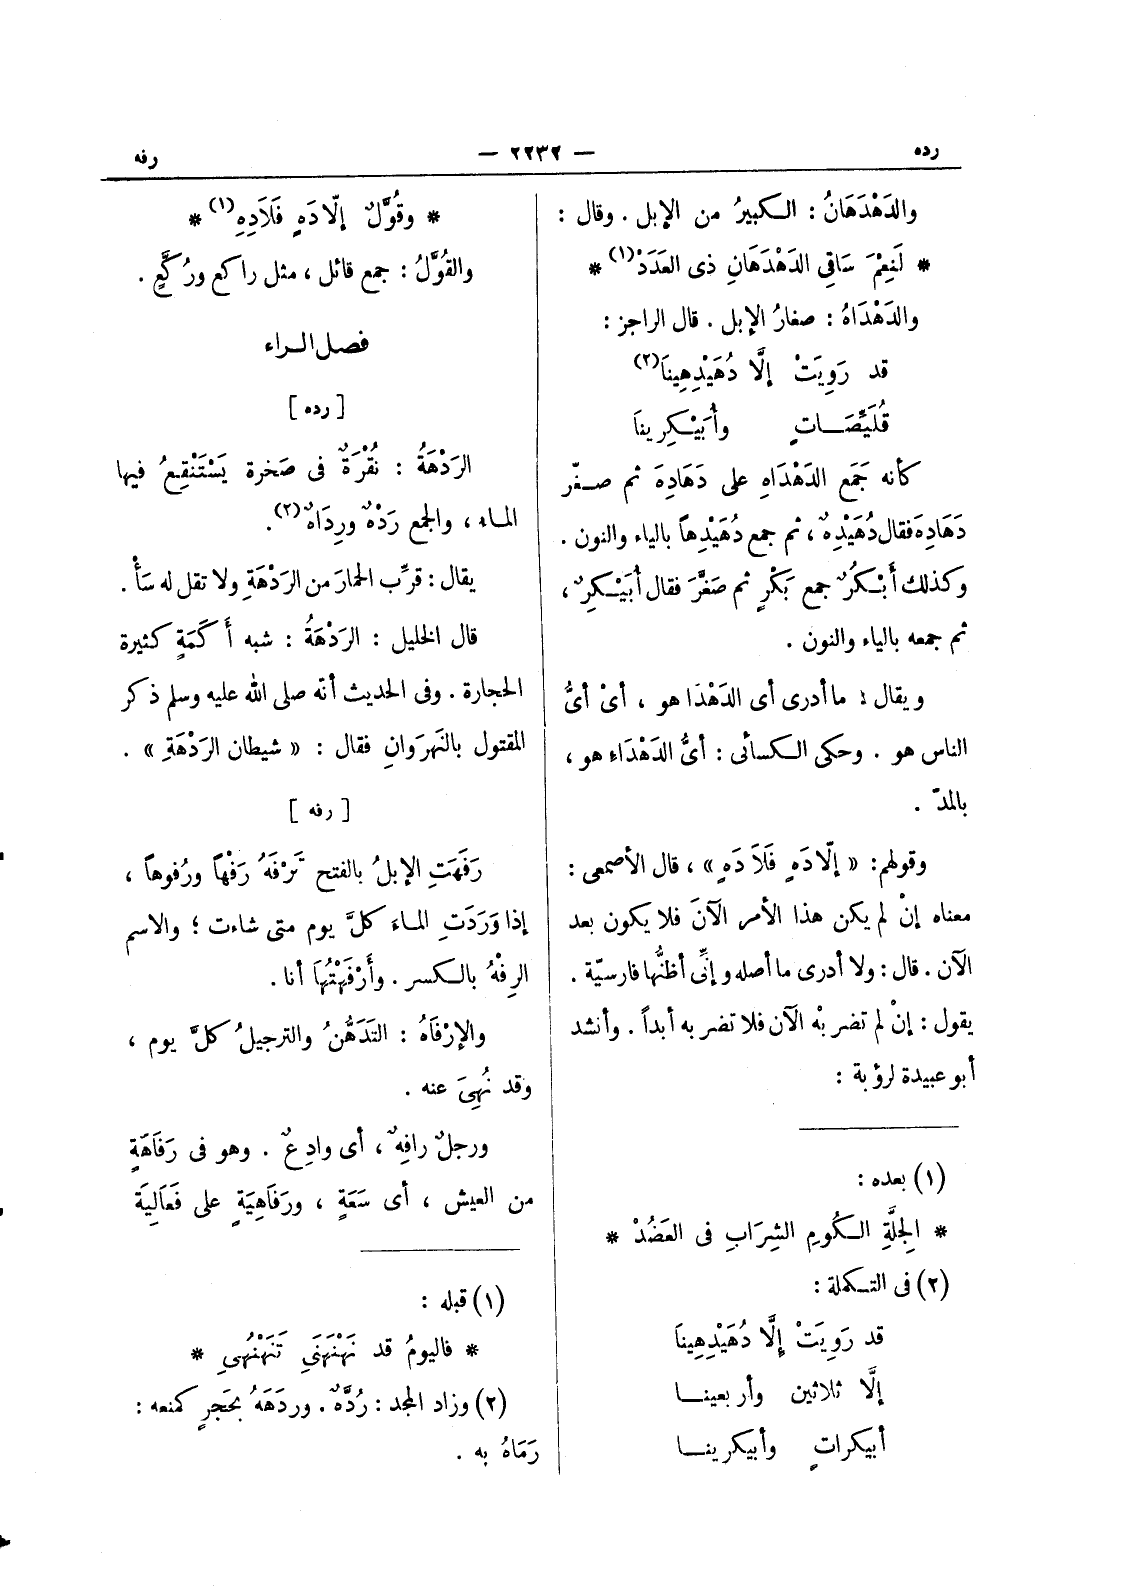 رده
— ٢٢٣٢ —
رفه
والدَهْدَهَانُ : الكبيرُ من الإبل . وقال :
* لَنِعْمَ سَاقِي الدَهْدَهَانِ ذى العَدَدْ(١) *
والدَهْدَاهُ : صغارُ الإبل . قال الراجز :
قد رَوِيَتْ إلَّا دُهَيْدِهِينَا(٢)
قُلَيِّصَاتٍ وأُبَيْكِرِينَا
كأنه جَمَع الدَهْدَاهِ على دَهَادِهَ ثم صغّر
دَهَادِهَ فقال دُهَيْدِهٌ ، ثم جمع دُهَيْدِهاً بالياء والنون .
وكذلك أَبْكُرٌ جمع بَكْرٍ ثم صَغَّرَ فقال أُبَيْكِرٌ ،
ثم جمعه بالياء والنون .
ويقال : ما أدرى أى الدَهْدَا هو ، أىْ أىُّ
الناس هو . وحكى الكسائى : أىُّ الدَهْدَاءِ هو ،
بالمدّ .
وقولهم : « إلّادَهٍ فَلَا دَهٍ » ، قال الأصمعى :
معناه إنْ لم يكن هذا الأمر الآنَ فلا يكون بعد
الآن . قال : ولا أدرى ما أصله وإنِّى أظنُّها فارسيّة .
يقول : إنْ لم تضربْه الآن فلا تضربه أبداً . وأنشد
أبو عبيدة لرؤبة :
(١) بعده :
* الجِلَّةِ الكُومِ الشِرَابِ فى العَضُدْ *
(٢) فى التكملة :
قد رَوِيَتْ إِلَّا دُهَيْدِهِينَا
إلَّا ثلاثين وأربعينا
أبيكراتٍ وأبيكرينا
* وقُوَّلٌ إلّادَهٍ فَلَادِهِ(١) *
والقُوَّلُ : جمع قائل ، مثل راكع ورُكَّعٍ .
فصل الراء
[ رده ]
الرَدْهَةُ : نُقْرَةٌ فى صَخرة يَسْتَنْقِعُ فيها
الماء ، والجمع رَدْهٌ ورِدَاهٌ(٢).
يقال : قرِّب الحمارَ من الرَدْهَةِ ولا تقل له سَأْ .
قال الخليل : الرَدْهَةُ : شبه أكَمَةٍ كثيرة
الحجارة . وفى الحديث أنّه صلى الله عليه وسلم ذكر
المقتول بالنَهرَوانِ فقال : « شيطان الرَدْهَةِ » .
[ رفه ]
رَفَهَتِ الإبلُ بالفتح تَرْفَهُ رَفْهاً ورُفوهاً ،
إذا وَرَدَتِ الماءَ كلَّ يوم متى شاءت ؛ والاسم
الرِفْهُ بالكسر . وأَرْفَهْتُهَا أنا .
والإرْفَاهُ : التَدَهُّنُ والترجيلُ كلَّ يوم ،
وقد نُهِىَ عنه .
ورجلٌ رافِهٌ ، أى وادِعٌ . وهو فى رَفَاهَةٍ
من العيش ، أى سَعَةٍ ، ورَفَاهِيَةٍ على فَعَالِيَة
(١) قبله :
* فاليومُ قد نَهْنَهَنَى تَنَهْنُهِى *
(٢) وزاد المجد : رُدَّهٌ . وردَهَهُ بحَجرٍ كمنعه :
رَمَاهُ به .